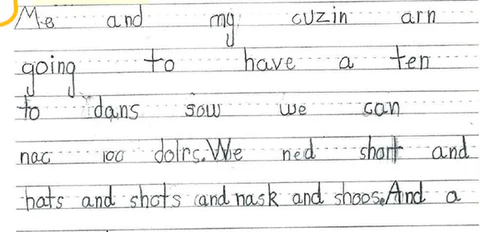 Me and my cuzin arn
going to have a ten
to dans sow we can
nac 100 dolrs. We ned short and
hats and shots and nask and shoos. And a